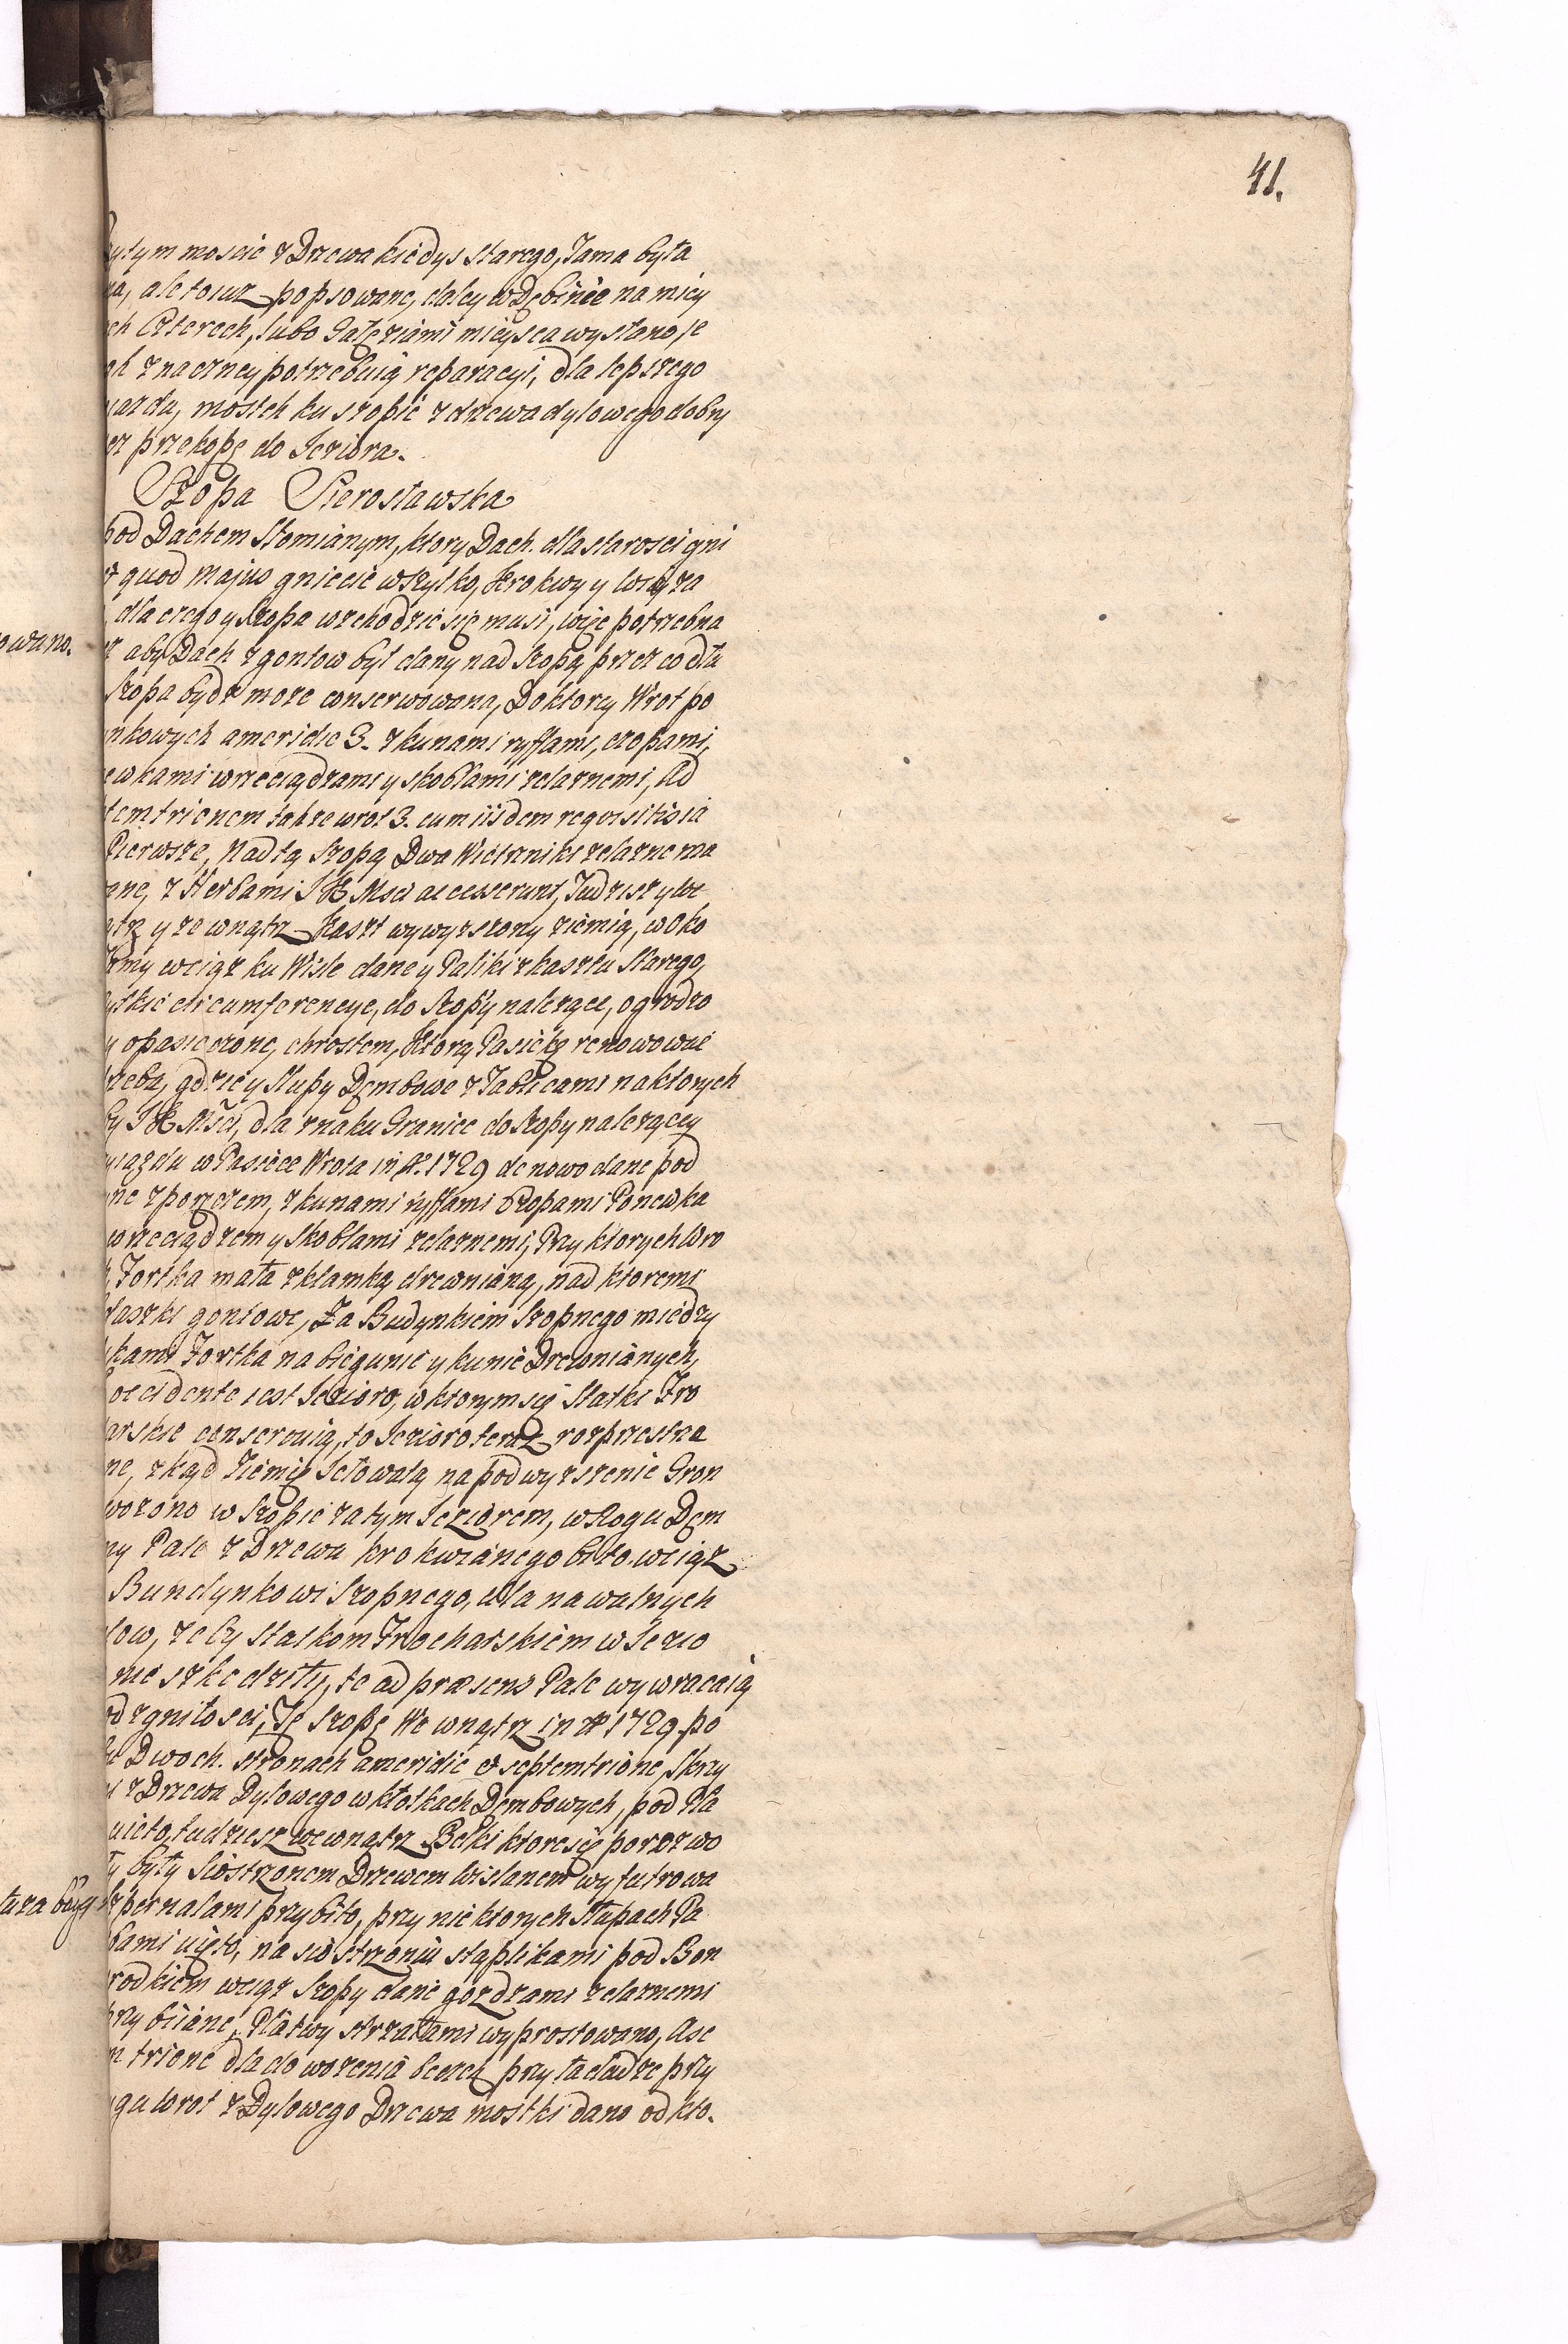 41.
ytym moscie z Drzewa kiedys starego, Tama była
na, ale to iuz popsowane, daley w Dębinie na miey
ch Czterech, lubo Gałęziami mieysca wysłano, je
ak znaczney potrzebuią reparacyi, dla lepszego
iazdu, mostek ku szopie z drzewa dylowego dobry
ez przekopę do Jeziora.
Szopa Sierosławska
pod Dachem Słomianym, ktory Dach dla starosci gni
quod majus gniecie wszytko, Krokwy y wiąza
dla czego y Szopa wzchodzic się musi, więc potrzebna
aby Dach z gontow był dany nad szopą przez co dłu
szopa bydz moze conserwowana, Do ktorey Wrot po
nkowych a meridie 3. z kunami ryffami, czopami,
ewkami wrzeciądzami y skoblami zelaznemi, Ad
temtrionem takze wrot 3. cum iisdem reqvisitis ia
Pierwsze, Nad tą szopą Dwa Wietrzniki zelazne ma
ane, z Herbami JKMsci accesserunt, Tudziesz y we
ątrz y ze wnątrz Kaszt wywyzszony ziemią, w oko
Tamy wciąz ku Wisle dane y Paliki z kasztu starego,
ytkie circumferencye, do szopy nalezące, ogrodzo
y opasieczone, chrostem, Ktorą Pasiekę renowowac
rzeba, gdzie y słupy Dębowe z Tablicami na ktorych
by JKMsci, dla znaku Granice do szopy nalezącey
iazdu w Pasiece Wrota in Ao. 1729 de nowo dane pod
ne z porzczem, z kunami ryffami czopami Ponewka
wrzeciądzem y skoblami zelaznemi, Przy ktorych Wro
Fortka mała z klamką drewnianą, nad ktoremi
daszki gontowe, Za Budynkiem Szopnego między
kami Fortka na biegunie y kunie Drewnianych,
occidente iest Jezioro, w ktorym się statki Fro
arskie conserwuią, to Jezioro teraz rozprzestrza
ne, zkąd Ziemię Iłowatą na podwyzszenie Gron
wozono w szopie za tym Jeziorem, w Rogu Dęm
ny Pale z Drzewa krokwianego bito wciąz
Bundynkowi szopnego, dla nawalnych
low, zeby statkom Frocharskiem w Jezio
nie szkodziły, te ad præsens Pale wywracaią
od zgniłosci, Tę szopę We wnątrz in Ao 1729. po
Dwoch stronach a meridie et septemtrione, skrzy
z Drzewa Dylowego w kłotkach Dębowych, pod Pła
uięto, tudziesz wewnątrz Belki ktore się porozwo
ły były siostrzonem Drzewem Wislanem wyfutrowa
pernalami przybito, przy niektorych słupach Pa
bami uięto, na siostrzoniu słuplikami pod Bon
rodkiem wciąz szopy danie gozdzami zelaznemi
przybiiane, Płatwy strzałami wyprostowano, A se
m trione dla dowozenia beczek przy ładudze przy
gu wrot z Dylowego Drzewa mostki dano od kto.
owano.